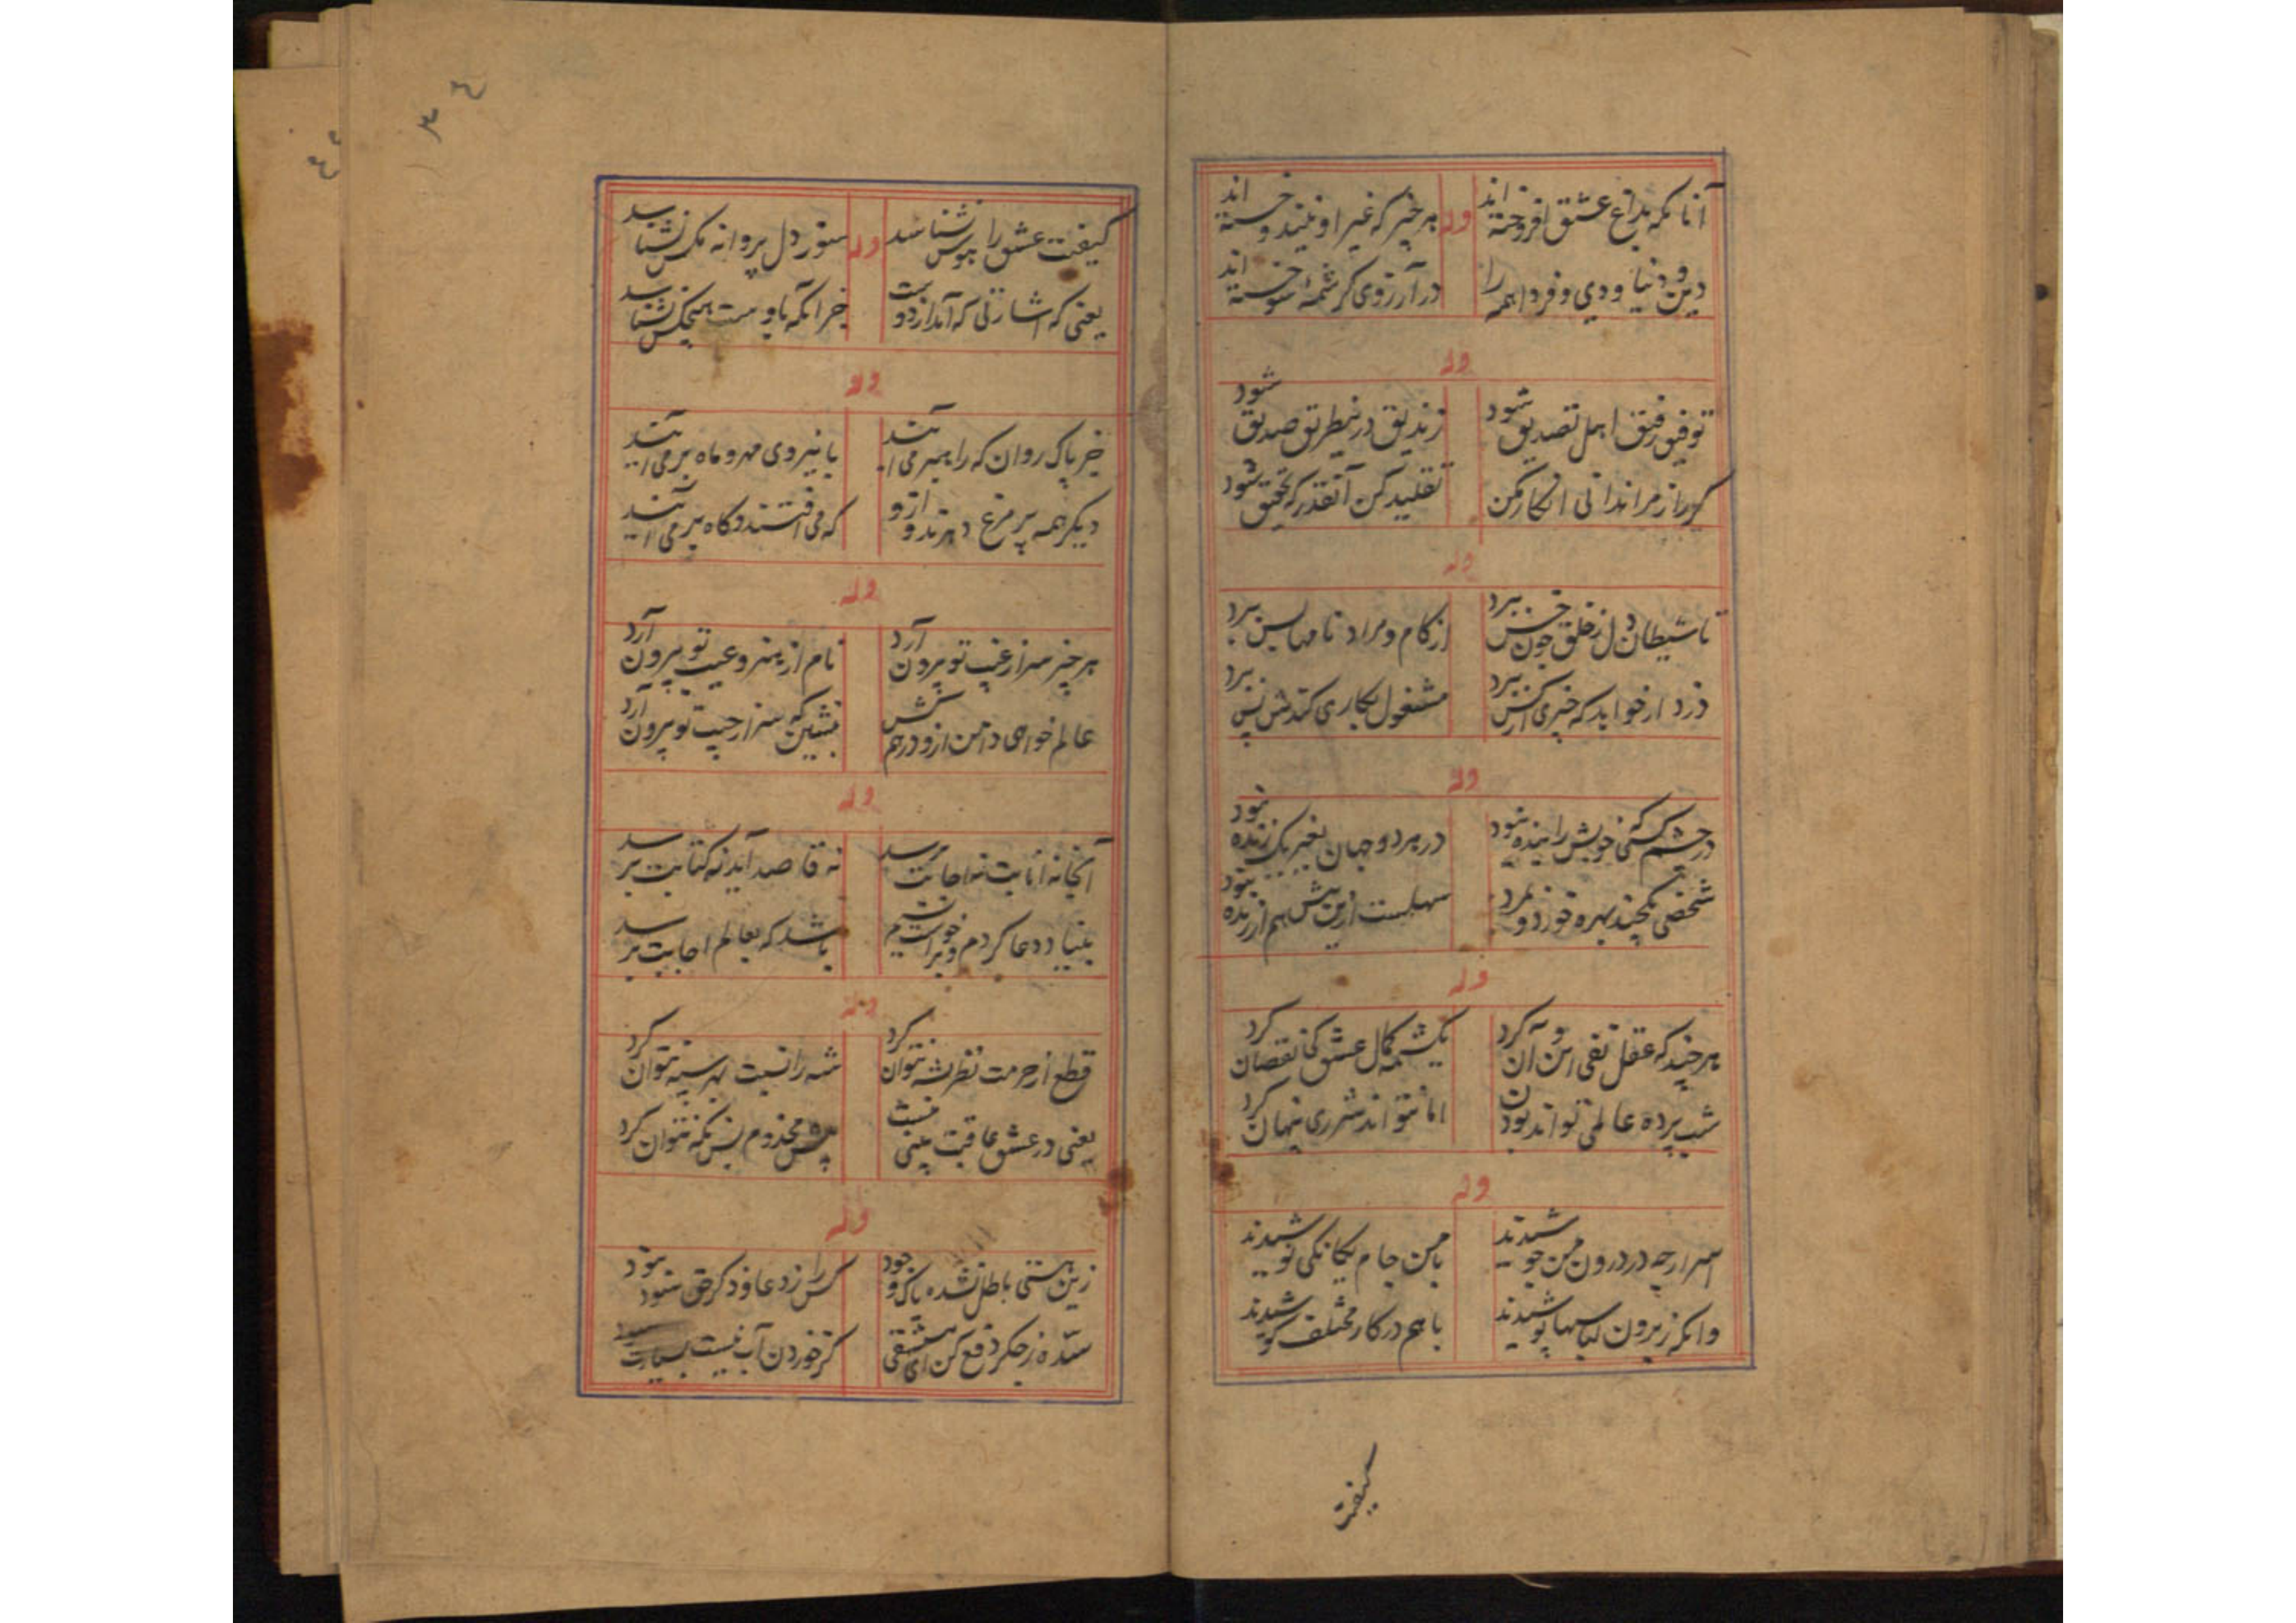 آنانکه بداغ عشق افروخته اند وله هر چیز که غیر او نبیند و خسته اند
دین و دنیا و دی و فردا همه را در آرزوی کرشمهٔ سوخته اند
وله
توفیق رفیق اهل تصدیق شود زندیق درینطریق صدیق شود
گر راز مرا ندانی انکار مکن تقلید کن آنقدر که تحقیق شود
وله
تا شیطان دل ز خلق چون خس ببرد از کام و مراد تا مهاسن ببرد
دزد ار خواهد که چیزی از کس ببرد مشغول بکاری کندش پس ببرد
وله
در چشم کسی که خویش را بنده شود در هر دو جهان بغیر یک زنده نبود
شخصی بکچند بهره خورد و نمرد سهلست ازین پیش هم ار زنده نبود
وله
هر چند که عقل نفی این و آن کرد یک شمه کمال عشق کی نقصان کرد
شب پرده عالمی تواند بودن اما نتواند شرری پنهان کرد
وله
اسرار چه در درون من جوشیدند با من جام یکانکی نوشیدند
وانکه ز برون لباسها پوشیدند با هم در کار مختلف کوشیدند
کیفیت
کیفیت عشق را هوس نشناسد وله سوز دل پروانه مکس نشناسد
یعنی که اشارتی که آندارد دوست جز آنکه باوست هیچکس نشناسد
وله
جز پاک روان که راهبر می آیند با نیروی مهر و ماه بر می آیند
دیکر همه پر مرغ دهرند و ازو که می افتند و کاه بر می آیند
وله
هر چیز سر از غیب تو بیرون آرد نام از هنر و عیب تو بیرون آرد
عالم خواهی دامن ازو درهم کش بنشین که سر از جیب تو بیرون آرد
وله
آنجا نه انابت نه اجابت برسد نه قاصد آید نه کتابت برسد
بنیاد دعا کردم و برخواستیم باشد که بعالم اجابت برسد
وله
قطع از حرمت نظر نشه نتوان کرد شه را نسبت بهر سیه نتوان کرد
یعنی در عشق عاقبت بینی نیست پیش مخدوم پس نکه نتوان کرد
وله
زین هستی باطل نشده پاک وجود کس را نزد عاود کر حق نبود
سدّه ز جکر دفع کن ای مستسقی کز خوردن آب نیست بسیارت سود